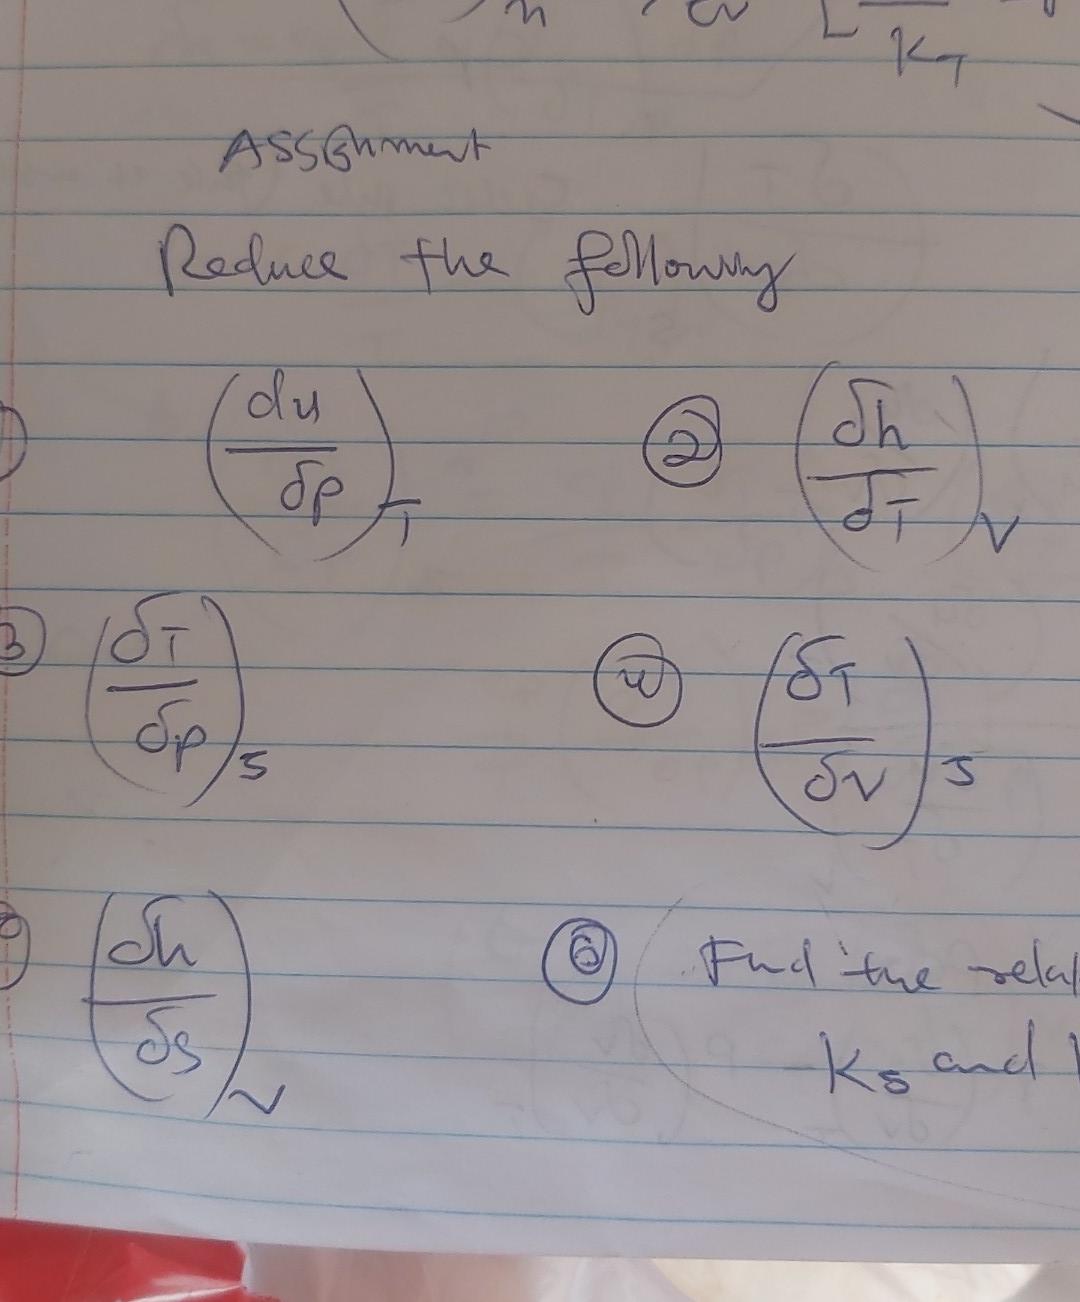 K_T
Assignment
Reduce the following
(du/δp)_T ② (δh/δT)_v
③ (δT/δp)_s ④ (δT/δv)_s
(δh/δs)_v ⑥ Find the
K_s and